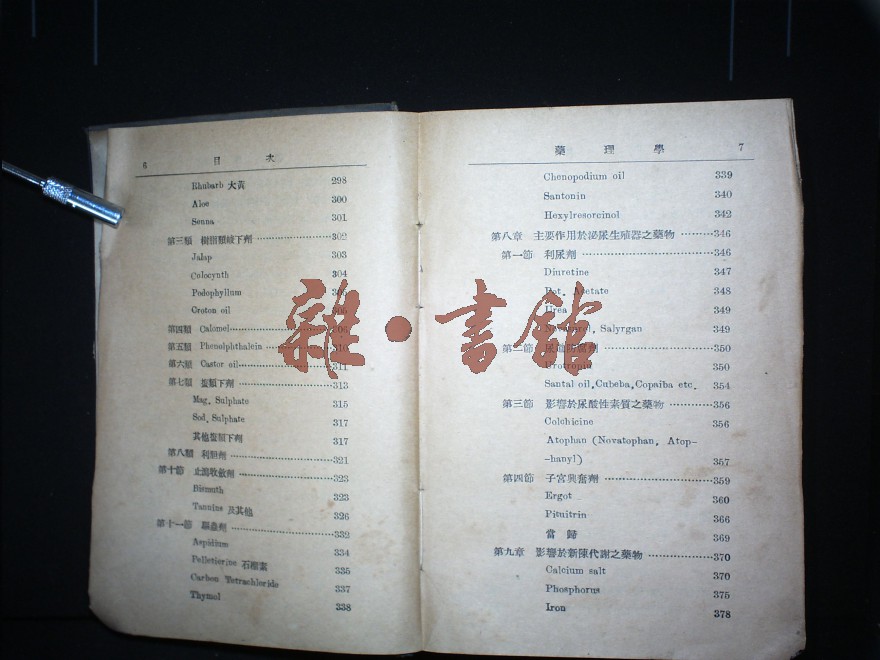 6 目次
Rhubarb 大黃 298
Aloe 300
Senna 301
第三類 樹脂類峻下劑 302
Jalap 303
Colocynth 304
Podophyllum
Croton oil
第四類 Calomel
第五類 Phenolphthalein 310
第六類 Castor oil 311
第七類 鹽類下劑 313
Mag. Sulphate 315
Sod. Sulphate 317
其他鹽類下劑 317
第八類 利胆劑 321
第十節 止瀉收斂劑 323
Bismuth 323
Tannins 及其他 326
第十一節 驅蟲劑 332
Aspidium 334
Pelletierine 石榴素 335
Carbon Tetrachloride 337
Thymol 338
藥理學 7
Chenopodium oil 339
Santonin 340
Hexylresorcinol 342
第八章 主要作用於泌尿生殖器之藥物 346
第一節 利尿劑 346
Diuretine 347
Pot. Acetate 348
Urea 349
Novasurol, Salyrgan 349
第二節 防腐劑 350
Urotropin 350
Santal oil, Cubeba, Copaiba etc. 354
第三節 影響於尿酸性素質之藥物 356
Colchicine 356
Atophan (Novatophan, Atop-
-hanyl) 357
第四節 子宮興奮劑 359
Ergot 360
Pituitrin 366
當歸 369
第九章 影響於新陳代謝之藥物 370
Calcium salt 370
Phosphorus 375
Iron 378
雜·書館